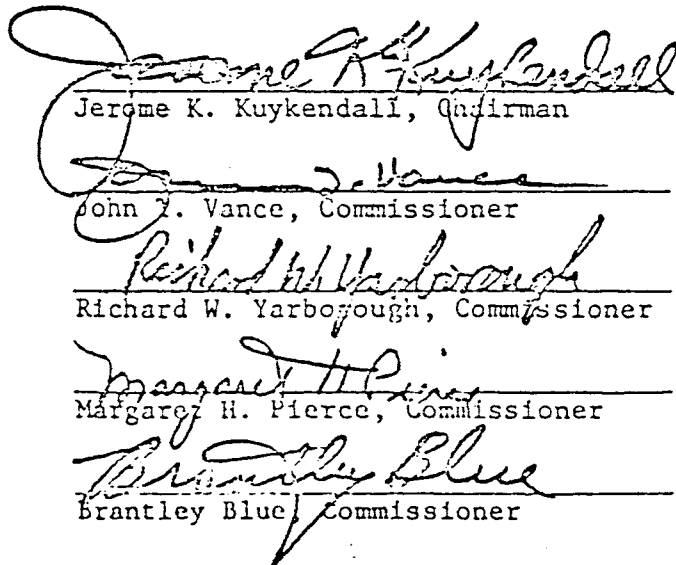 Jerome K Kuykendall
Jerome K. Kuykendall, Chairman
John T. Vance
John T. Vance, Commissioner
Richard W Yarborough
Richard W. Yarborough, Commissioner
Margaret H Pierce
Margaret H. Pierce, Commissioner
Brantley Blue
Brantley Blue, Commissioner